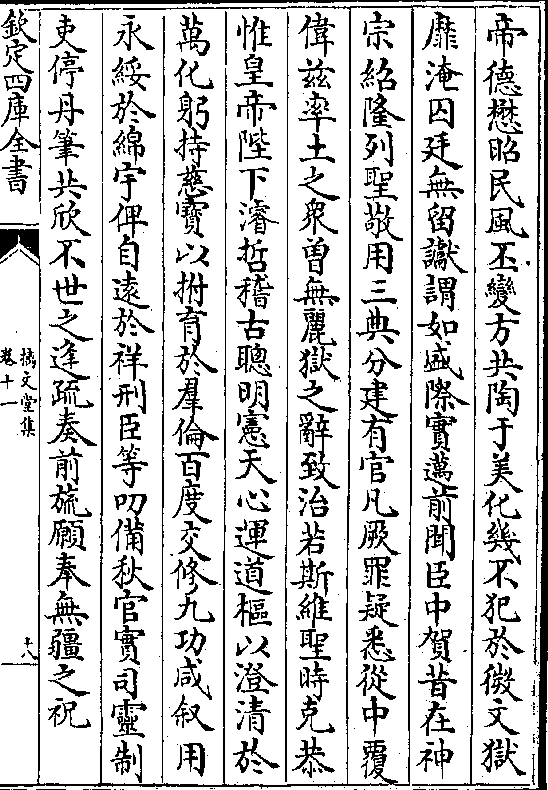 帝德懋昭民風丕變方共陶于美化幾不犯於微文獄
靡淹囚廷無留讞謂如盛際實邁前聞臣中賀昔在神
宗紹隆列聖敬用三典分建有官凡厥罪疑悉從中覆
偉兹率土之衆曽無麗獄之辭致治若斯維聖時克恭
惟皇帝陛下濬哲稽古聰明憲天心運道樞以澄清於
萬化躬持慈寶以拊育於羣倫百度交修九功咸叙用
永綏於綿宇俾自遠於祥刑臣等叨備秋官實司靈制
吏停丹筆共欣不世之逢疏奏前旒願奉無疆之祝
欽定四庫全書
摛文堂集
卷十一
十八